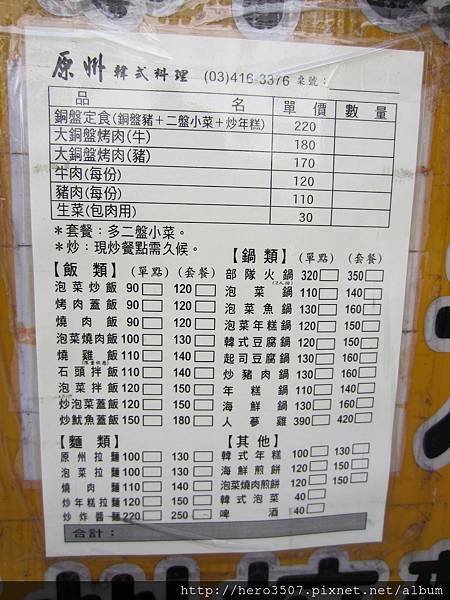 原州 韓式料理 (03)416-3376 桌號:
品 名 單價 數量
銅盤定食(銅盤豬+二盤小菜+炒年糕) 220
大銅盤烤肉(牛) 180
大銅盤烤肉(豬) 170
牛肉(每份) 120
豬肉(每份) 110
生菜(包肉用) 30
*套餐:多二盤小菜。
*炒:現炒餐點需久候。
【飯 類】(單點) (套餐)
泡菜炒飯 90 120
烤肉蓋飯 90 120
燒肉飯 90 120
泡菜燒肉飯 100 130
燒雞飯 110 140
石頭拌飯 110 140
泡菜拌飯 120 150
炒泡菜蓋飯 120 150
炒魷魚蓋飯 150 180
【麵 類】
原州拉麵 100 130
泡菜拉麵 100 130
燒肉麵 110 140
炒年糕拉麵 120 150
炒炸醬麵 220 250
【鍋 類】(單點) (套餐)
部隊火鍋 320 350
(2人份)
泡菜鍋 110 140
泡菜魚鍋 130 160
泡菜年糕鍋 120 150
韓式豆腐鍋 120 150
起司豆腐鍋 130 160
炒豬肉鍋 130 160
年糕鍋 110 140
海鮮鍋 130 160
人蔘雞 390 420
【其 他】
韓式年糕 100 130
海鮮煎餅 120 150
泡菜燒肉煎餅 120 150
韓式泡菜 40
啤酒 40
合計:
http://hero3507.pixnet.net/album